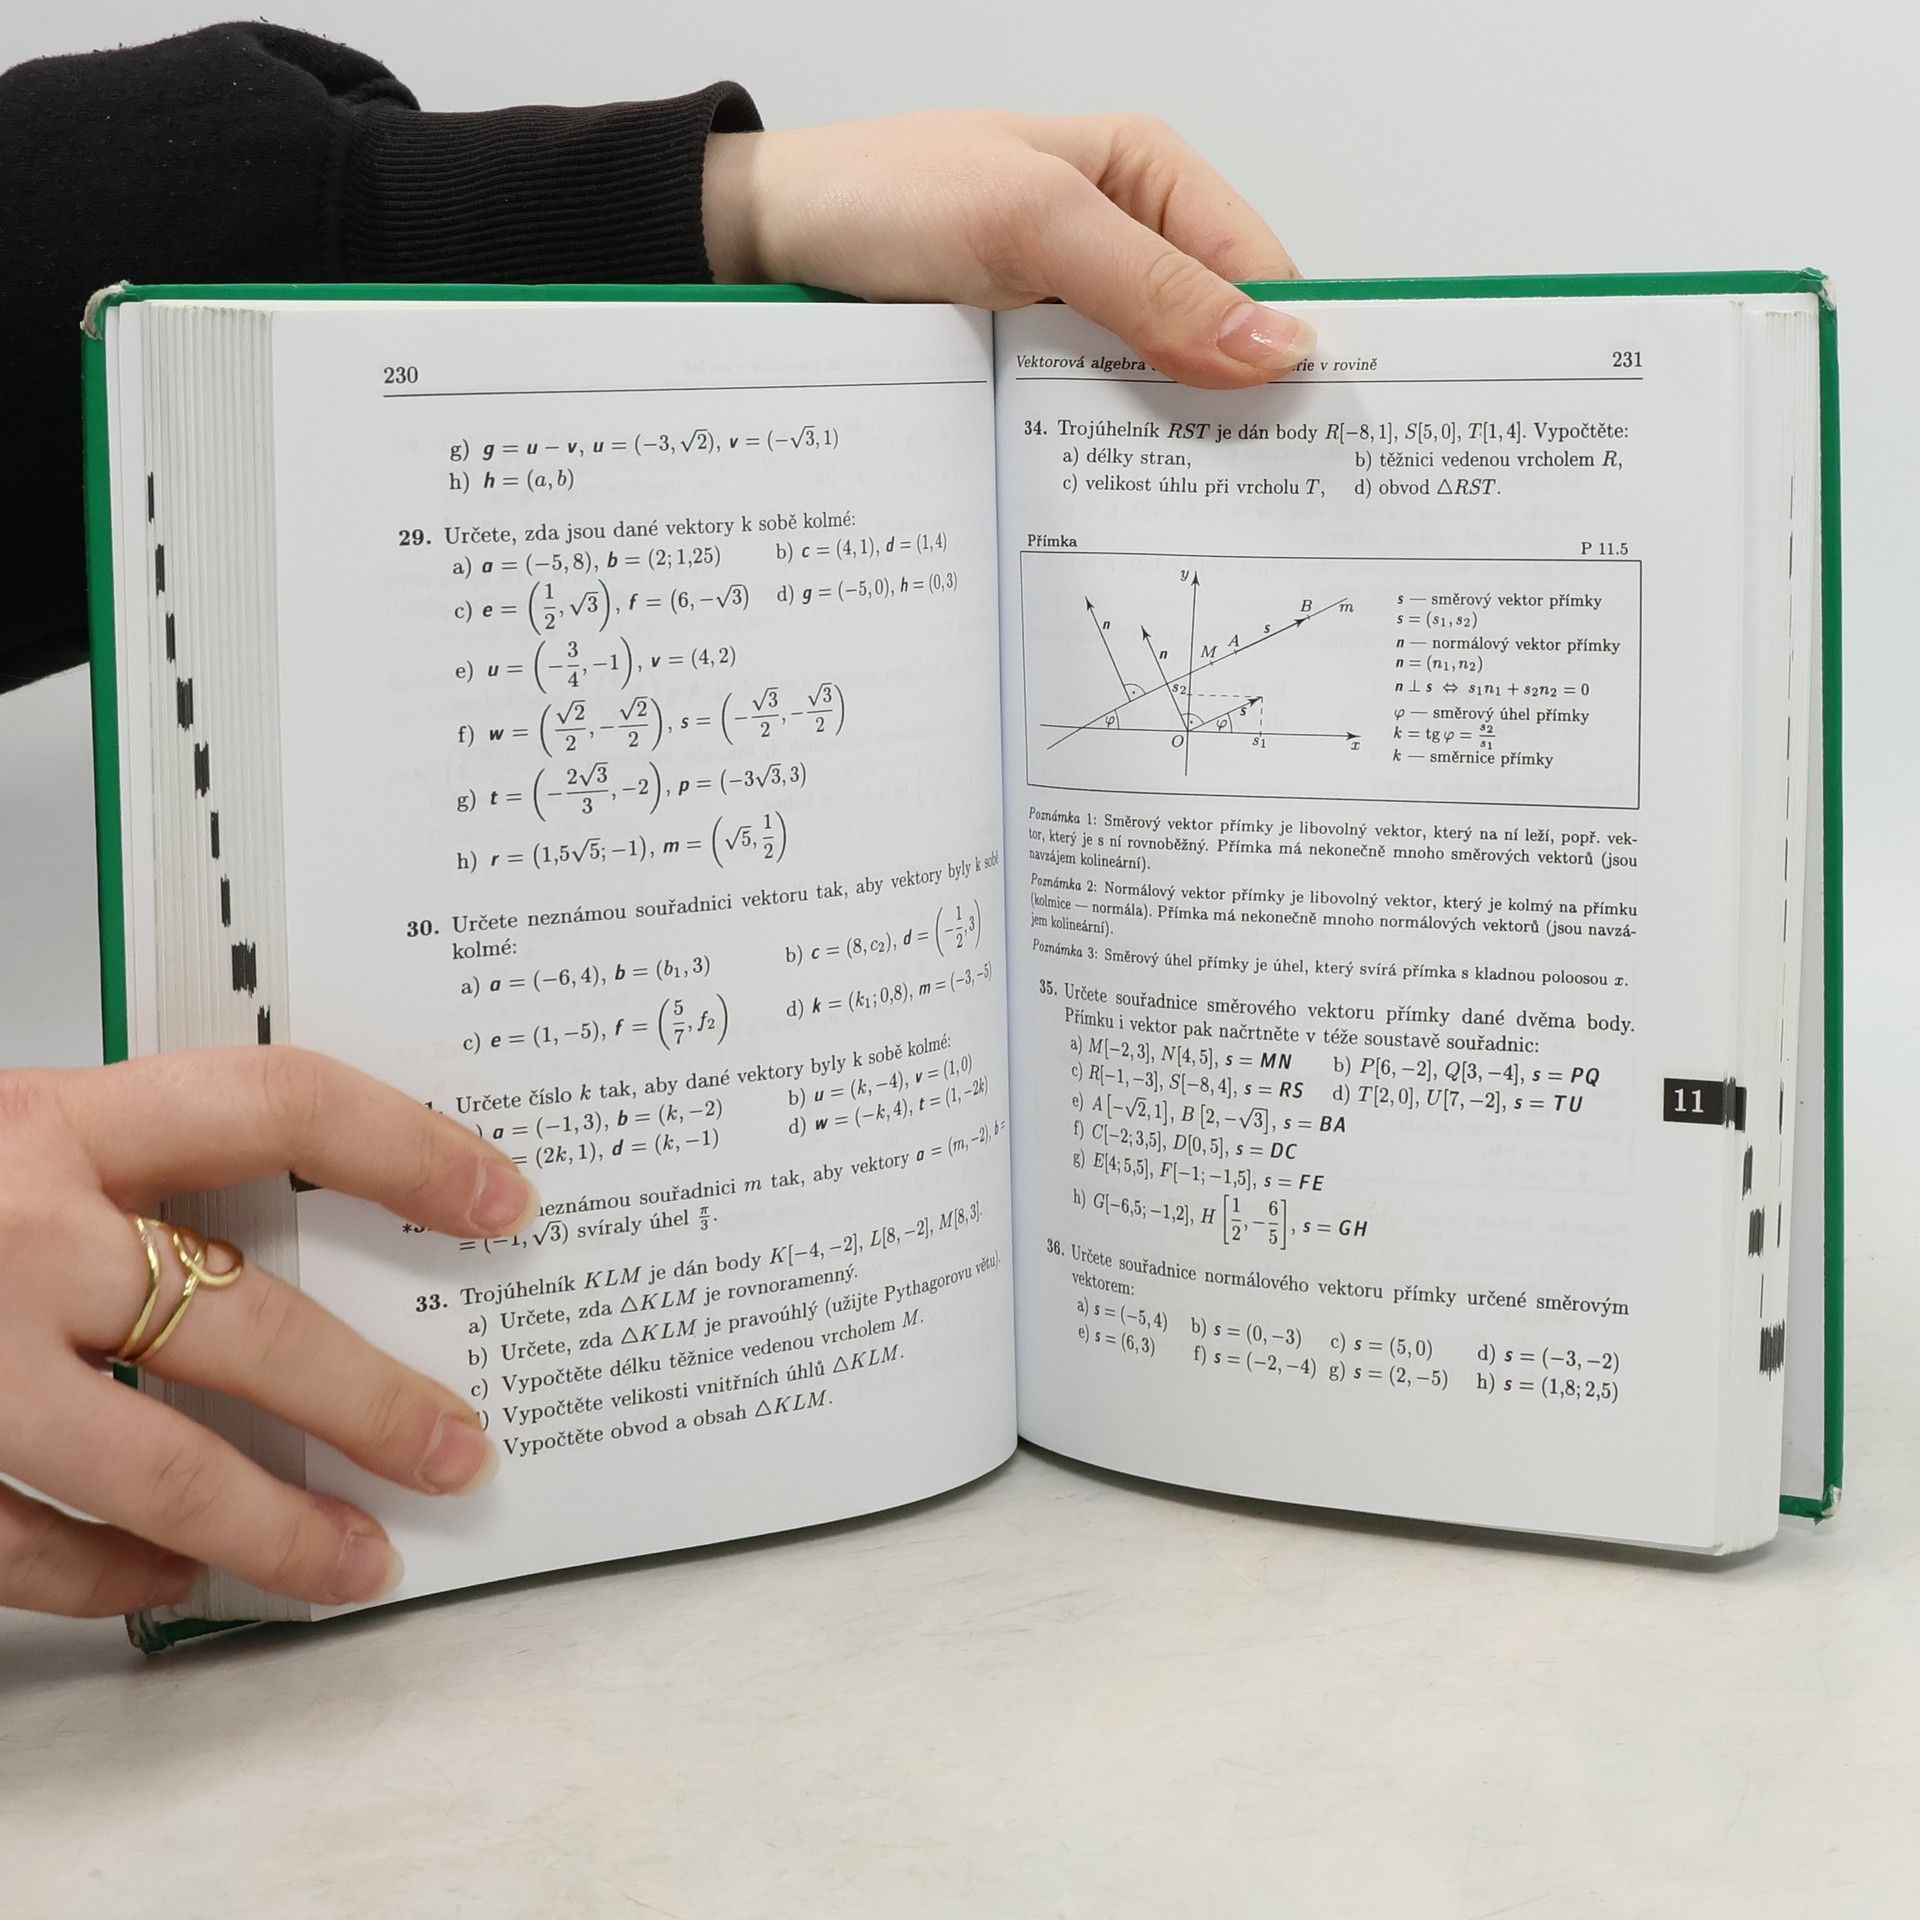 230
g) g = u − v, u = (−3, √2), v = (−√3, 1)
h) h = (a, b)
29. Určete, zda jsou dané vektory k sobě kolmé:
a) a = (−5, 8), b = (2; 1,25) b) c = (4, 1), d = (1, 4)
c) e = (1/2, √3), f = (6, −√3) d) g = (−5, 0), h = (0, 3)
e) u = (−3/4, −1), v = (4, 2)
f) w = (√2/2, −√2/2), s = (−√3/2, −√3/2)
g) t = (−2√3/3, −2), p = (−3√3, 3)
h) r = (1,5√5; −1), m = (√5, 1/2)
30. Určete neznámou souřadnici vektoru tak, aby vektory byly k sobě
kolmé:
a) a = (−6, 4), b = (b₁, 3) b) c = (8, c₂), d = (−1/2, 3)
c) e = (1, −5), f = (5/7, f₂) d) k = (k₁; 0,8), m = (−3, −5)
Určete číslo k tak, aby dané vektory byly k sobě kolmé:
a = (−1, 3), b = (k, −2) b) u = (k, −4), v = (1, 0)
= (2k, 1), d = (k, −1) d) w = (−k, 4), t = (1, −2k)
neznámou souřadnici m tak, aby vektory a = (m, −2), b =
= (−1, √3) svíraly úhel π/3.
33. Trojúhelník KLM je dán body K[−4, −2], L[8, −2], M[8, 3].
a) Určete, zda △KLM je rovnoramenný.
b) Určete, zda △KLM je pravoúhlý (užijte Pythagorovu větu).
c) Vypočtěte délku těžnice vedenou vrcholem M.
) Vypočtěte velikosti vnitřních úhlů △KLM.
Vypočtěte obvod a obsah △KLM.
Vektorová algebra rie v rovině 231
34. Trojúhelník RST je dán body R[−8, 1], S[5, 0], T[1, 4]. Vypočtěte:
a) délky stran, b) těžnici vedenou vrcholem R,
c) velikost úhlu při vrcholu T, d) obvod △RST.
Přímka P 11.5
y
n
n
M A s B m
s₂
s
φ
φ
O s₁ x
s — směrový vektor přímky
s = (s₁, s₂)
n — normálový vektor přímky
n = (n₁, n₂)
n ⊥ s ⇔ s₁n₁ + s₂n₂ = 0
φ — směrový úhel přímky
k = tg φ = s₂/s₁
k — směrnice přímky
Poznámka 1: Směrový vektor přímky je libovolný vektor, který na ní leží, popř. vek-
tor, který je s ní rovnoběžný. Přímka má nekonečně mnoho směrových vektorů (jsou
navzájem kolineární).
Poznámka 2: Normálový vektor přímky je libovolný vektor, který je kolmý na přímku
(kolmice — normála). Přímka má nekonečně mnoho normálových vektorů (jsou navzá-
jem kolineární).
Poznámka 3: Směrový úhel přímky je úhel, který svírá přímka s kladnou poloosou x.
35. Určete souřadnice směrového vektoru přímky dané dvěma body.
Přímku i vektor pak načrtněte v téže soustavě souřadnic:
a) M[−2, 3], N[4, 5], s = MN b) P[6, −2], Q[3, −4], s = PQ
c) R[−1, −3], S[−8, 4], s = RS d) T[2, 0], U[7, −2], s = TU
e) A[−√2, 1], B[2, −√3], s = BA
f) C[−2; 3,5], D[0, 5], s = DC
g) E[4; 5,5], F[−1; −1,5], s = FE
h) G[−6,5; −1,2], H[1/2, −6/5], s = GH
36. Určete souřadnice normálového vektoru přímky určené směrovým
vektorem:
a) s = (−5, 4) b) s = (0, −3) c) s = (5, 0) d) s = (−3, −2)
e) s = (6, 3) f) s = (−2, −4) g) s = (2, −5) h) s = (1,8; 2,5)
11